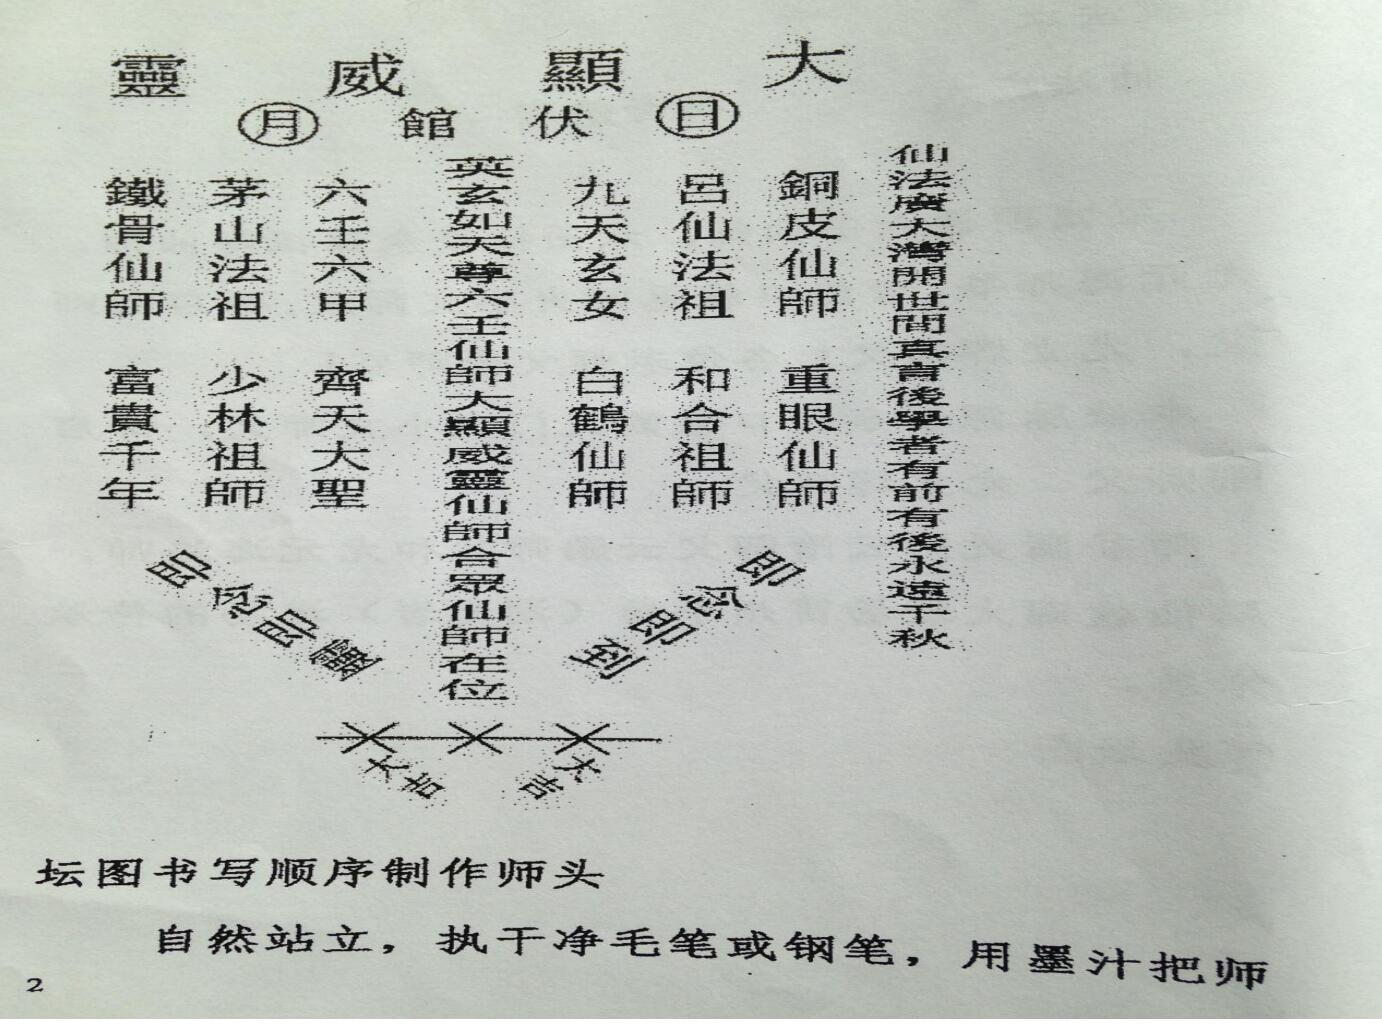 大顯威靈
日伏館月
仙法廣大灣開世間真育後學者有前有後永遠千秋
銅皮仙師 重眼仙師
呂仙法祖 和合祖師
九天玄女 白鶴仙師
英玄如天尊六壬仙師大顯威靈仙師合眾仙師在位
六壬六甲 齊天大聖
茅山法祖 少林祖師
鐵骨仙師 富貴千年
即念即到
即念即靈
大吉
大吉
坛图书写顺序制作师头
自然站立，执干净毛笔或钢笔，用墨汁把师
2